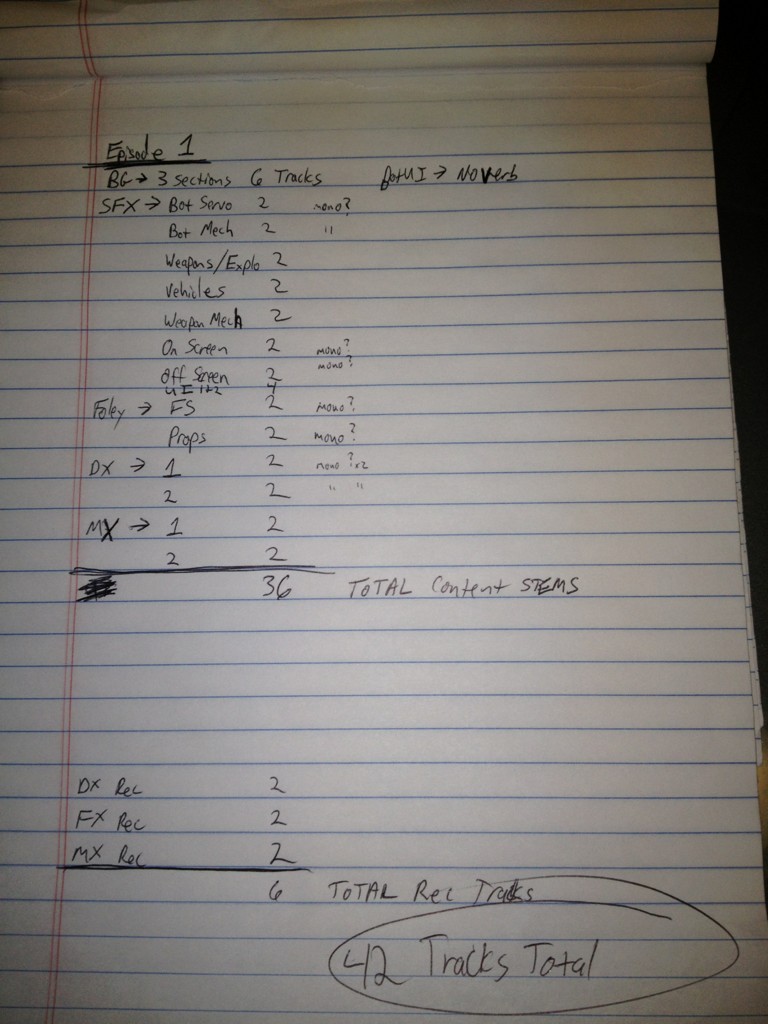 Episode 1
BG → 3 sections 6 Tracks Bot UI → No Verb
SFX → Bot Servo 2 mono?
Bot Mech 2 "
Weapons/Explo 2
Vehicles 2
Weapon Mech 2
On Screen 2 mono?
Off Screen 2 mono?
UI 1+2 4
Foley → FS 2 mono?
Props 2 mono?
DX → 1 2 mono? x2
2 2 " "
MX → 1 2
2 2
36 TOTAL Content STEMS
DX Rec 2
FX Rec 2
MX Rec 2
6 TOTAL Rec Tracks
42 Tracks Total